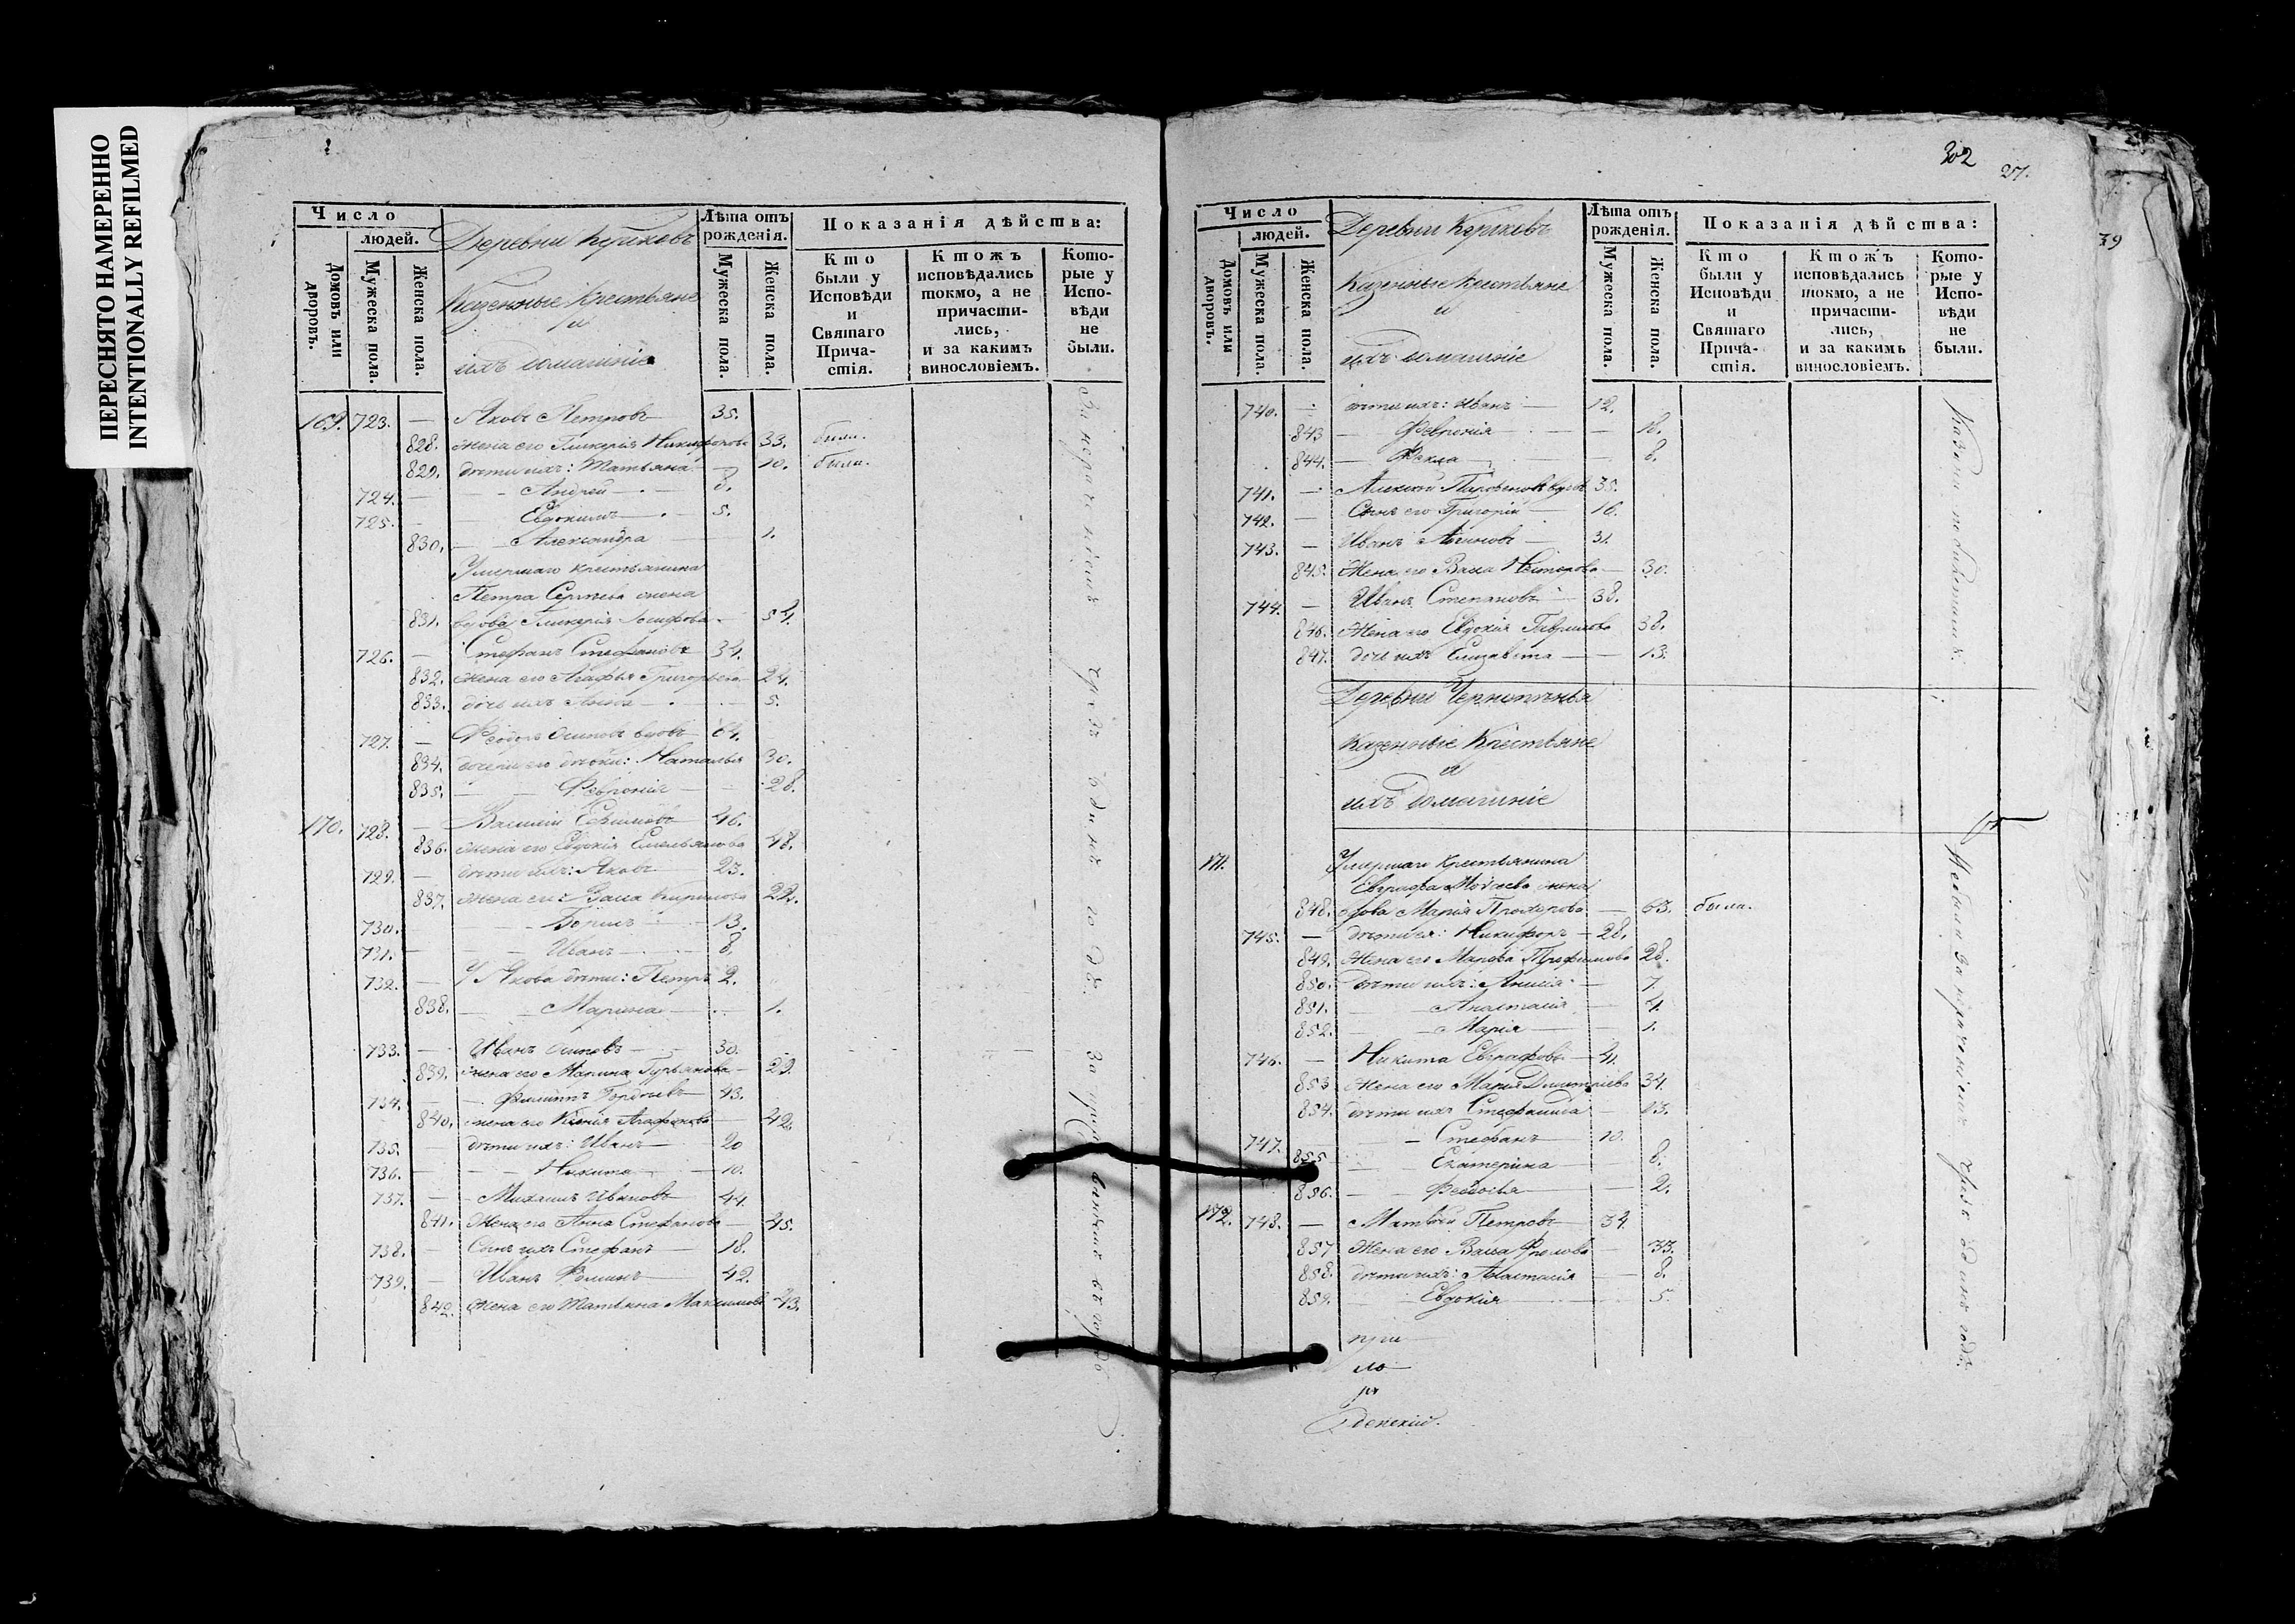 ПЕРЕСНЯТО НАМЕРЕННО
INTENTIONALLY REFILMED
Число
людей.
Домовъ или дворовъ.
Мужеска пола.
Женска пола.
Деревни
Казенные Крестьяне
и
ихъ домашніе
Лѣта отъ рожденія.
Мужеска пола.
Женска пола.
Показанія дѣйства:
Кто были у Исповѣди и Святаго Причастія.
Ктожъ исповѣдались токмо, а не причастились, и за какимъ винословіемъ.
Которые у Исповѣди не были.
169. 723. — Яковъ Петровъ 35.
828. жена его Гликерія Никифорова 33. была.
829. дѣти ихъ: Татьяна 10. была.
724. — Андрей 8.
725. — Евдокимъ 5.
830. Александра 1.
Умершаго крестьянина
Петра Сергѣева жена
831. вдова Гликерія Іосифова 54.
726. — Стефанъ Стефановъ 34.
832. жена его Агафья Григорьева 24.
833. дочь ихъ Анна 5.
727. — Феодоръ Осиповъ вдовъ 64.
834. дочери его дѣвки: Наталья 30.
835. Февронія 28.
170. 728. — Василій Евхимовъ 46.
836. жена его Евдокія Емельянова 48.
729. — дѣти ихъ: Яковъ 23.
837. жена его Васса Кирилова 22.
730. Борисъ 13.
731. Иванъ 8.
732. — У Якова дѣти: Петръ 2.
838. Марина 1.
733. — Иванъ Осиповъ 30.
839. жена его Марина Гурьянова 29.
734. — Филиппъ Гордѣевъ 43.
840. жена его Ксенія Агафонова 42.
735. — дѣти ихъ: Иванъ 20
736. — Никита 10.
737. — Михаилъ Ивановъ 44.
841. Жена его Анна Стефанова 45.
738. — Сынъ ихъ Стефанъ 18.
739. — Иванъ Фоминъ 42.
842. Жена его Татьяна Максимова 43.
302
27.
39
Число
людей.
Домовъ или дворовъ.
Мужеска пола.
Женска пола.
Деревни
Казенные Крестьяне
и
ихъ домашніе
Лѣта отъ рожденія.
Мужеска пола.
Женска пола.
Показанія дѣйства:
Кто были у Исповѣди и Святаго Причастія.
Ктожъ исповѣдались токмо, а не причастились, и за какимъ винословіемъ.
Которые у Исповѣди не были.
740. — дѣти ихъ: Иванъ 12.
843 — Февронія
844. — Фекла 8.
741. — Алексѣй вдовъ 35.
742. — Сынъ его Григорій 16.
743. — Иванъ 31.
845. Жена его Васса Несторова 30.
744. — Иванъ Степановъ 38.
846. Жена его Евдокія Гаврилова 38.
847. дочь ихъ Елизавета 13.
Деревни
Казенные Крестьяне
и
ихъ домашніе
171. Умершаго Крестьянина
Евграфа жена
848. вдова Марія Прохорова 63. была.
745. — дѣти ея: Никифоръ 28.
849. Жена его Марфа Трофимова 28.
850. дѣти ихъ: Анисія 7.
851. Анастасія 4.
852. Марія 1.
746. — Никита Евграфовъ 41.
853 Жена его Марія Димитріева 34.
854. дѣти ихъ Стефанида 13.
747. — Стефанъ 10.
855 Екатерина 8.
856. Феодосья 2.
172. 748. — Матвѣй Петровъ 34.
857 Жена его Васса Фролова 33.
858. дѣти ихъ: Анастасія 8.
859. Евдокія 5.
Не были за нераченіемъ чрезъ одинъ годъ.